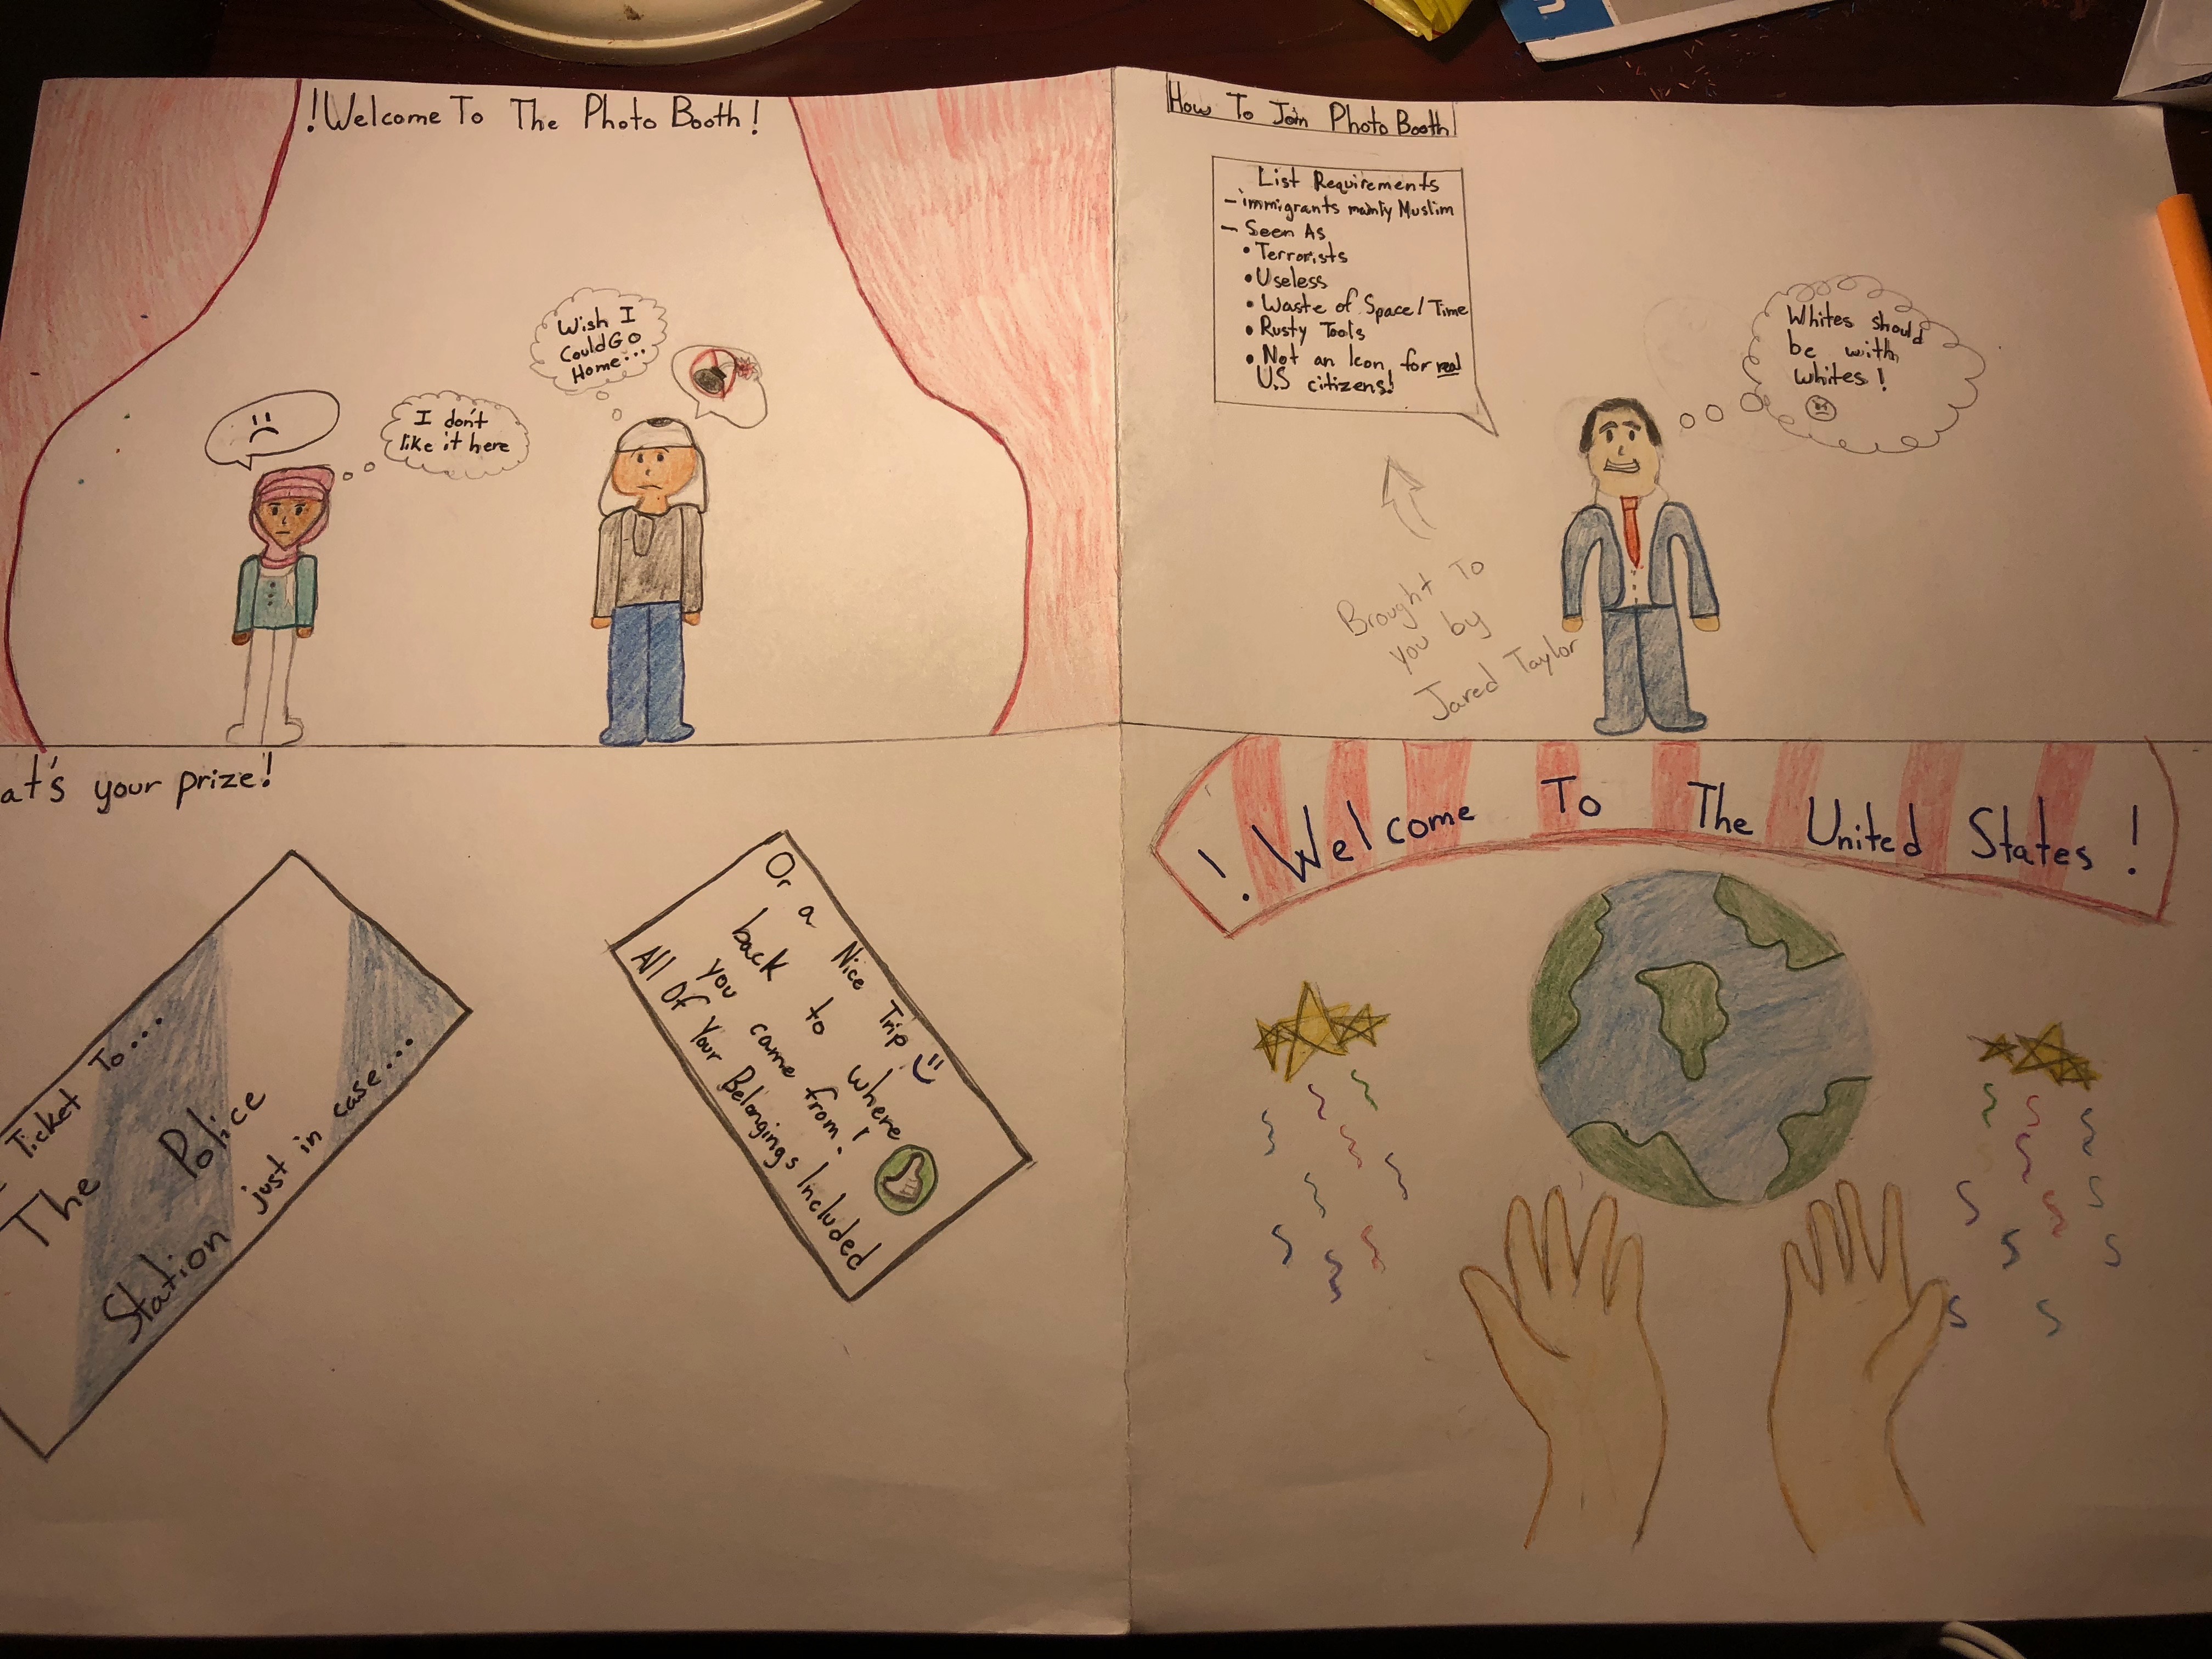 !Welcome To The Photo Booth!
Wish I
Could Go
Home...
I don't
like it here
How To Join Photo Booth
List Requirements
- immigrants mainly Muslim
- Seen As
• Terrorists
• Useless
• Waste of Space/Time
• Rusty Tools
• Not an Icon for real
U.S citizens!
Whites should
be with
whites!
Brought To
you by
Jared Taylor
at's your prize!
Ticket To...
The Police
Station
just in case...
Or a Nice Trip
back to where
you came from!
All Of Your Belongings Included
! Welcome To The United States !